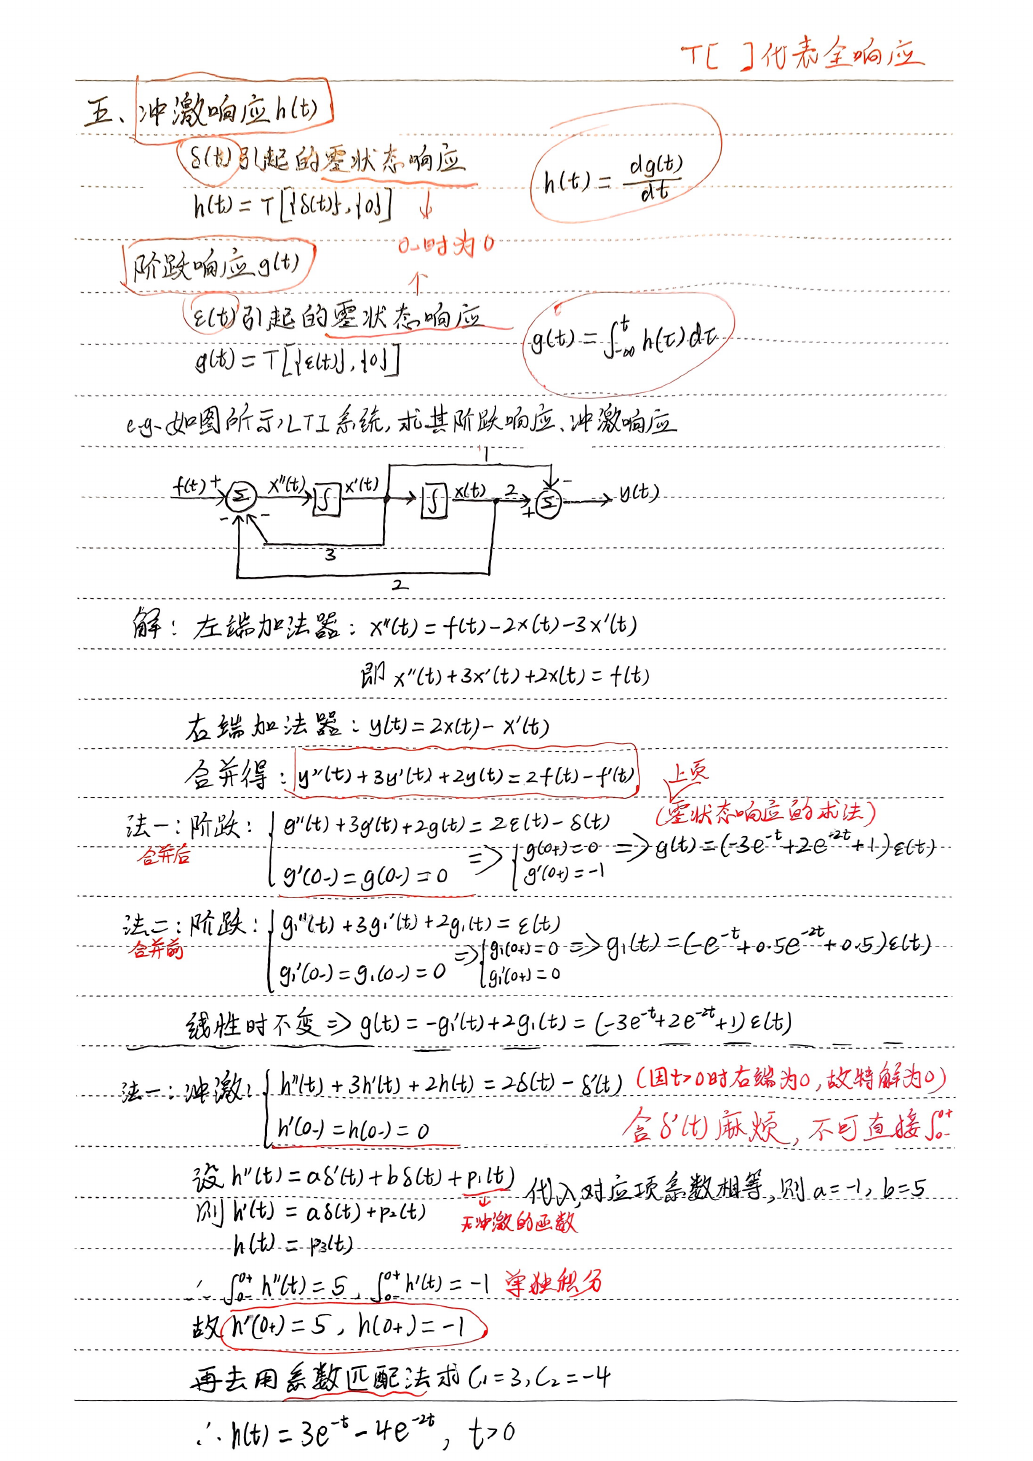 T[ ]代表全响应
五、冲激响应h(t)
δ(t)引起的零状态响应
h(t) = dg(t)/dt
h(t) = T[{δ(t)},{0}]
↓
0-时为0
↑
阶跃响应g(t)
ε(t)引起的零状态响应
g(t) = T[{ε(t)},{0}]
g(t) = ∫_{-∞}^{t} h(τ)dτ
e.g.如图所示,LTI系统,求其阶跃响应、冲激响应
1
f(t) + Σ x''(t) ∫ x'(t) ∫ x(t) 2 + Σ - y(t)
- -
3
2
解: 左端加法器: x''(t) = f(t)-2x(t)-3x'(t)
即 x''(t)+3x'(t)+2x(t) = f(t)
右端加法器: y(t) = 2x(t)- x'(t)
合并得: y''(t)+3y'(t)+2y(t) = 2f(t)-f'(t)
上页
(零状态响应的求法)
法一: 阶跃: { g''(t)+3g(t)+2g(t) = 2ε(t)-δ(t)
合并后
g'(0-) = g(0-) = 0 => { g(0+) = 0 g'(0+) = -1 => g(t) = (-3e^{-t}+2e^{-2t}+1)ε(t)
法二: 阶跃: { g₁''(t)+3g₁'(t)+2g₁(t) = ε(t)
合并前
g₁'(0-) = g₁(0-) = 0 => { g₁(0+) = 0 g₁'(0+) = 0 => g₁(t) = (-e^{-t}+0.5e^{-2t}+0.5)ε(t)
线性时不变 => g(t) = -g₁'(t)+2g₁(t) = (-3e^{-t}+2e^{-2t}+1)ε(t)
法一: 冲激: { h''(t)+3h'(t)+2h(t) = 2δ(t)-δ'(t) (因t>0时右端为0,故特解为0)
h'(0-) = h(0-) = 0
含δ'(t)麻烦,不可直接∫_{0-}^{0+}
设 h''(t) = aδ'(t)+bδ(t)+p₁(t) 代入,对应项系数相等,则 a=-1, b=5
↓
无冲激的函数
则 h'(t) = aδ(t)+p₂(t)
h(t) = p₃(t)
∴ ∫_{0-}^{0+} h''(t) = 5, ∫_{0-}^{0+} h'(t) = -1 单独积分
故 h''(0+) = 5, h(0+) = -1
再去用系数匹配法求 C₁=3, C₂=-4
∴ h(t) = 3e^{-t}-4e^{-2t}, t>0